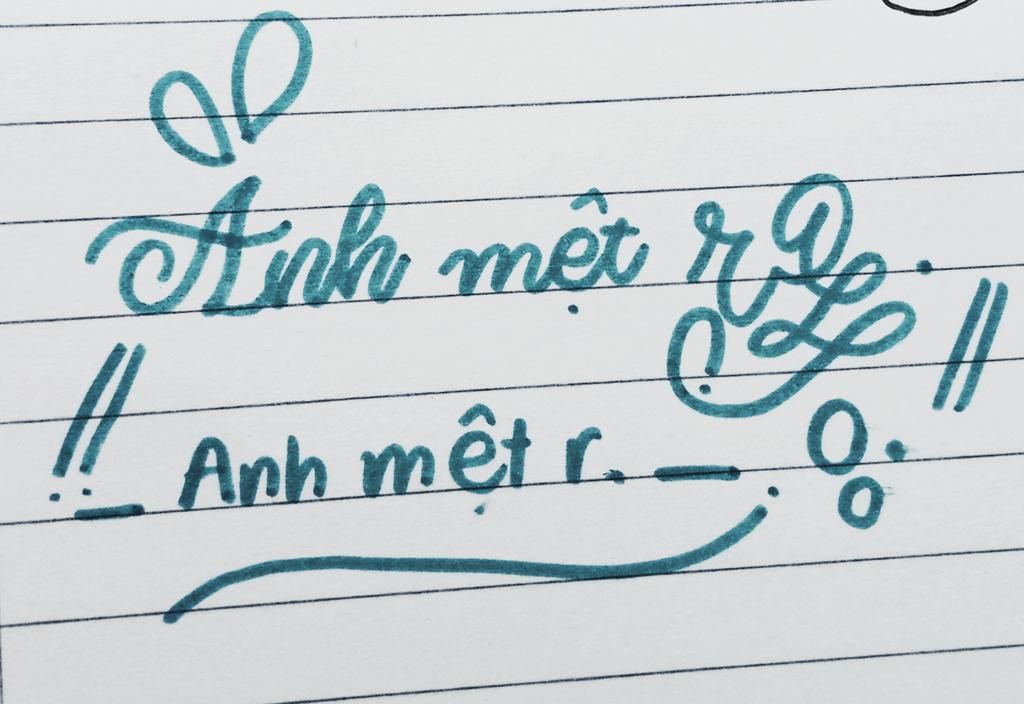 Anh mệt r.
Anh mệt r.